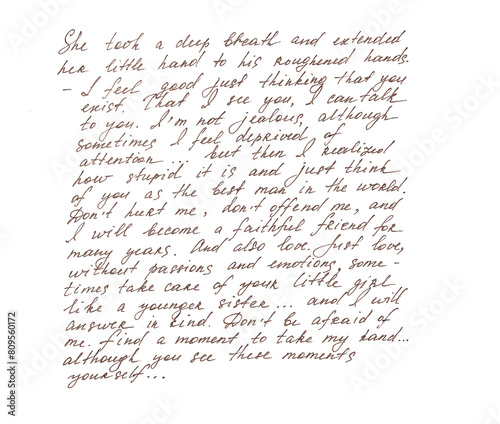 She took a deep breath and extended
her little hand to his roughened hands.
- I feel good just thinking that you
exist. That I see you, I can talk
to you. I'm not jealous, although
sometimes I feel deprived of
attention... but then I realized
how stupid it is and just think
of you as the best man in the world.
Don't hurt me, don't offend me, and
I will become a faithful friend for
many years. And also love. Just love,
without passions and emotions, some-
times take care of your little girl
like a younger sister... and I will
answer in kind. Don't be afraid of
me. find a moment to take my hand...
although you see these moments
yourself...
Adobe Stock | #809560172